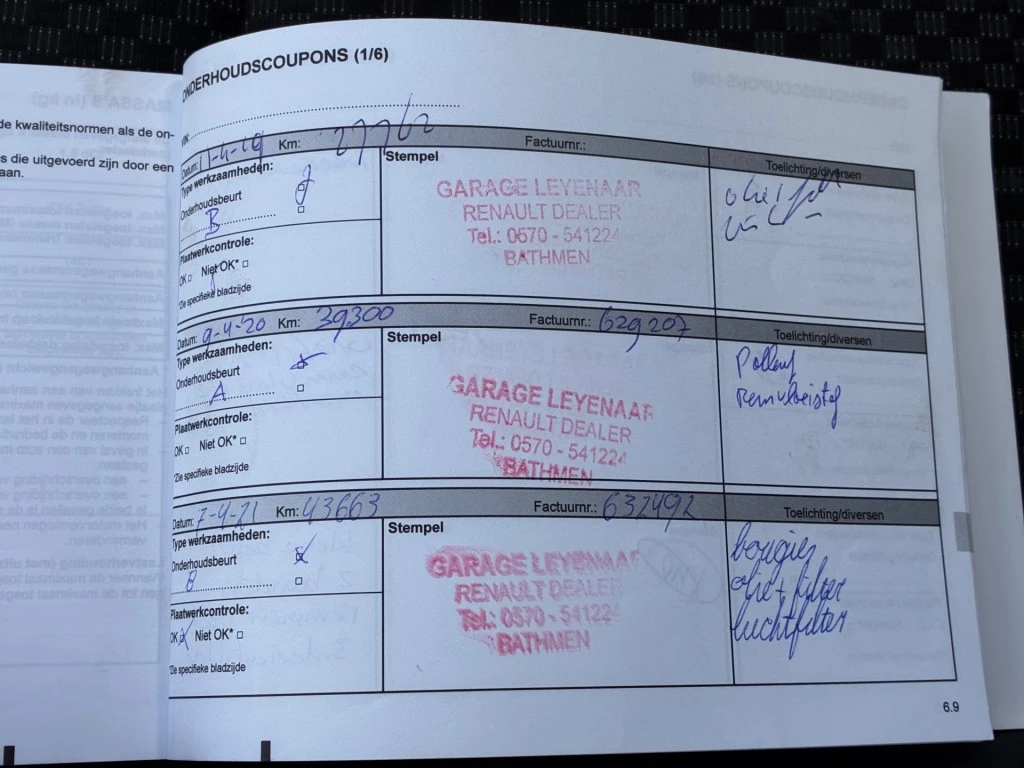 ONDERHOUDSCOUPONS (1/6)
de kwaliteitsnormen als de on-
s die uitgevoerd zijn door een
aan.
VIN:
Datum: 11-4-19 Km: 27762 Factuurnr.:
Type werkzaamheden:
Onderhoudsbeurt
B
Plaatwerkcontrole:
OK □ Niet OK* □
*Zie specifieke bladzijde
Stempel
GARAGE LEYENAAR
RENAULT DEALER
Tel.: 0570 - 541224
BATHMEN
Toelichting/diversen
Datum: 9-4-'20 Km: 39300 Factuurnr.: 629207
Type werkzaamheden:
Onderhoudsbeurt
A
Plaatwerkcontrole:
OK □ Niet OK* □
*Zie specifieke bladzijde
Stempel
GARAGE LEYENAAR
RENAULT DEALER
Tel.: 0570 - 541224
BATHMEN
Toelichting/diversen
Remvloeistof
Datum: 7-4-21 Km: 43663 Factuurnr.: 632492
Type werkzaamheden:
Onderhoudsbeurt
B
Plaatwerkcontrole:
OK □ Niet OK* □
*Zie specifieke bladzijde
Stempel
GARAGE LEYENAAR
RENAULT DEALER
Tel.: 0570 - 541224
BATHMEN
Toelichting/diversen
bougies
olie + filter
luchtfilter
6.9